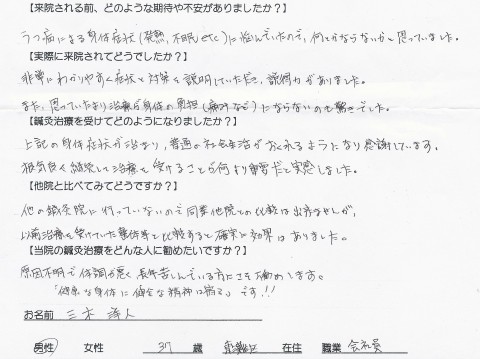 【来院される前、どのような期待や不安がありましたか？】
うつ病による身体症状(発熱、不眠etc)に悩んでいたので、何とかならないかと思っていました。
【実際に来院されてどうでしたか？】
非常にわかりやすく症状と対策を説明していただき、説得力がありました。
また、思っていたより治療が身体の負担(痛みなど)にならないので驚きでした。
【鍼灸治療を受けてどのようになりましたか？】
上記の身体症状が治まり、普通の社会生活がおくれるようになり感謝しています。
根気良く継続して治療を受けることが何より重要だと実感しました。
【他院と比べてみてどうですか？】
他の鍼灸院に行っていないので同業他院との比較は出来ませんが、
以前治療を受けていた整体等と比較すると確実に効果はありました。
【当院の鍼灸治療をどんな人に勧めたいですか？】
原因不明で体調が悪く、長年苦しんでいる方にこそお勧めします。
「健康な身体に健全な精神は宿る」です!!
お名前 三木 洋人
男性 女性 37 歳 在住 職業 会社員